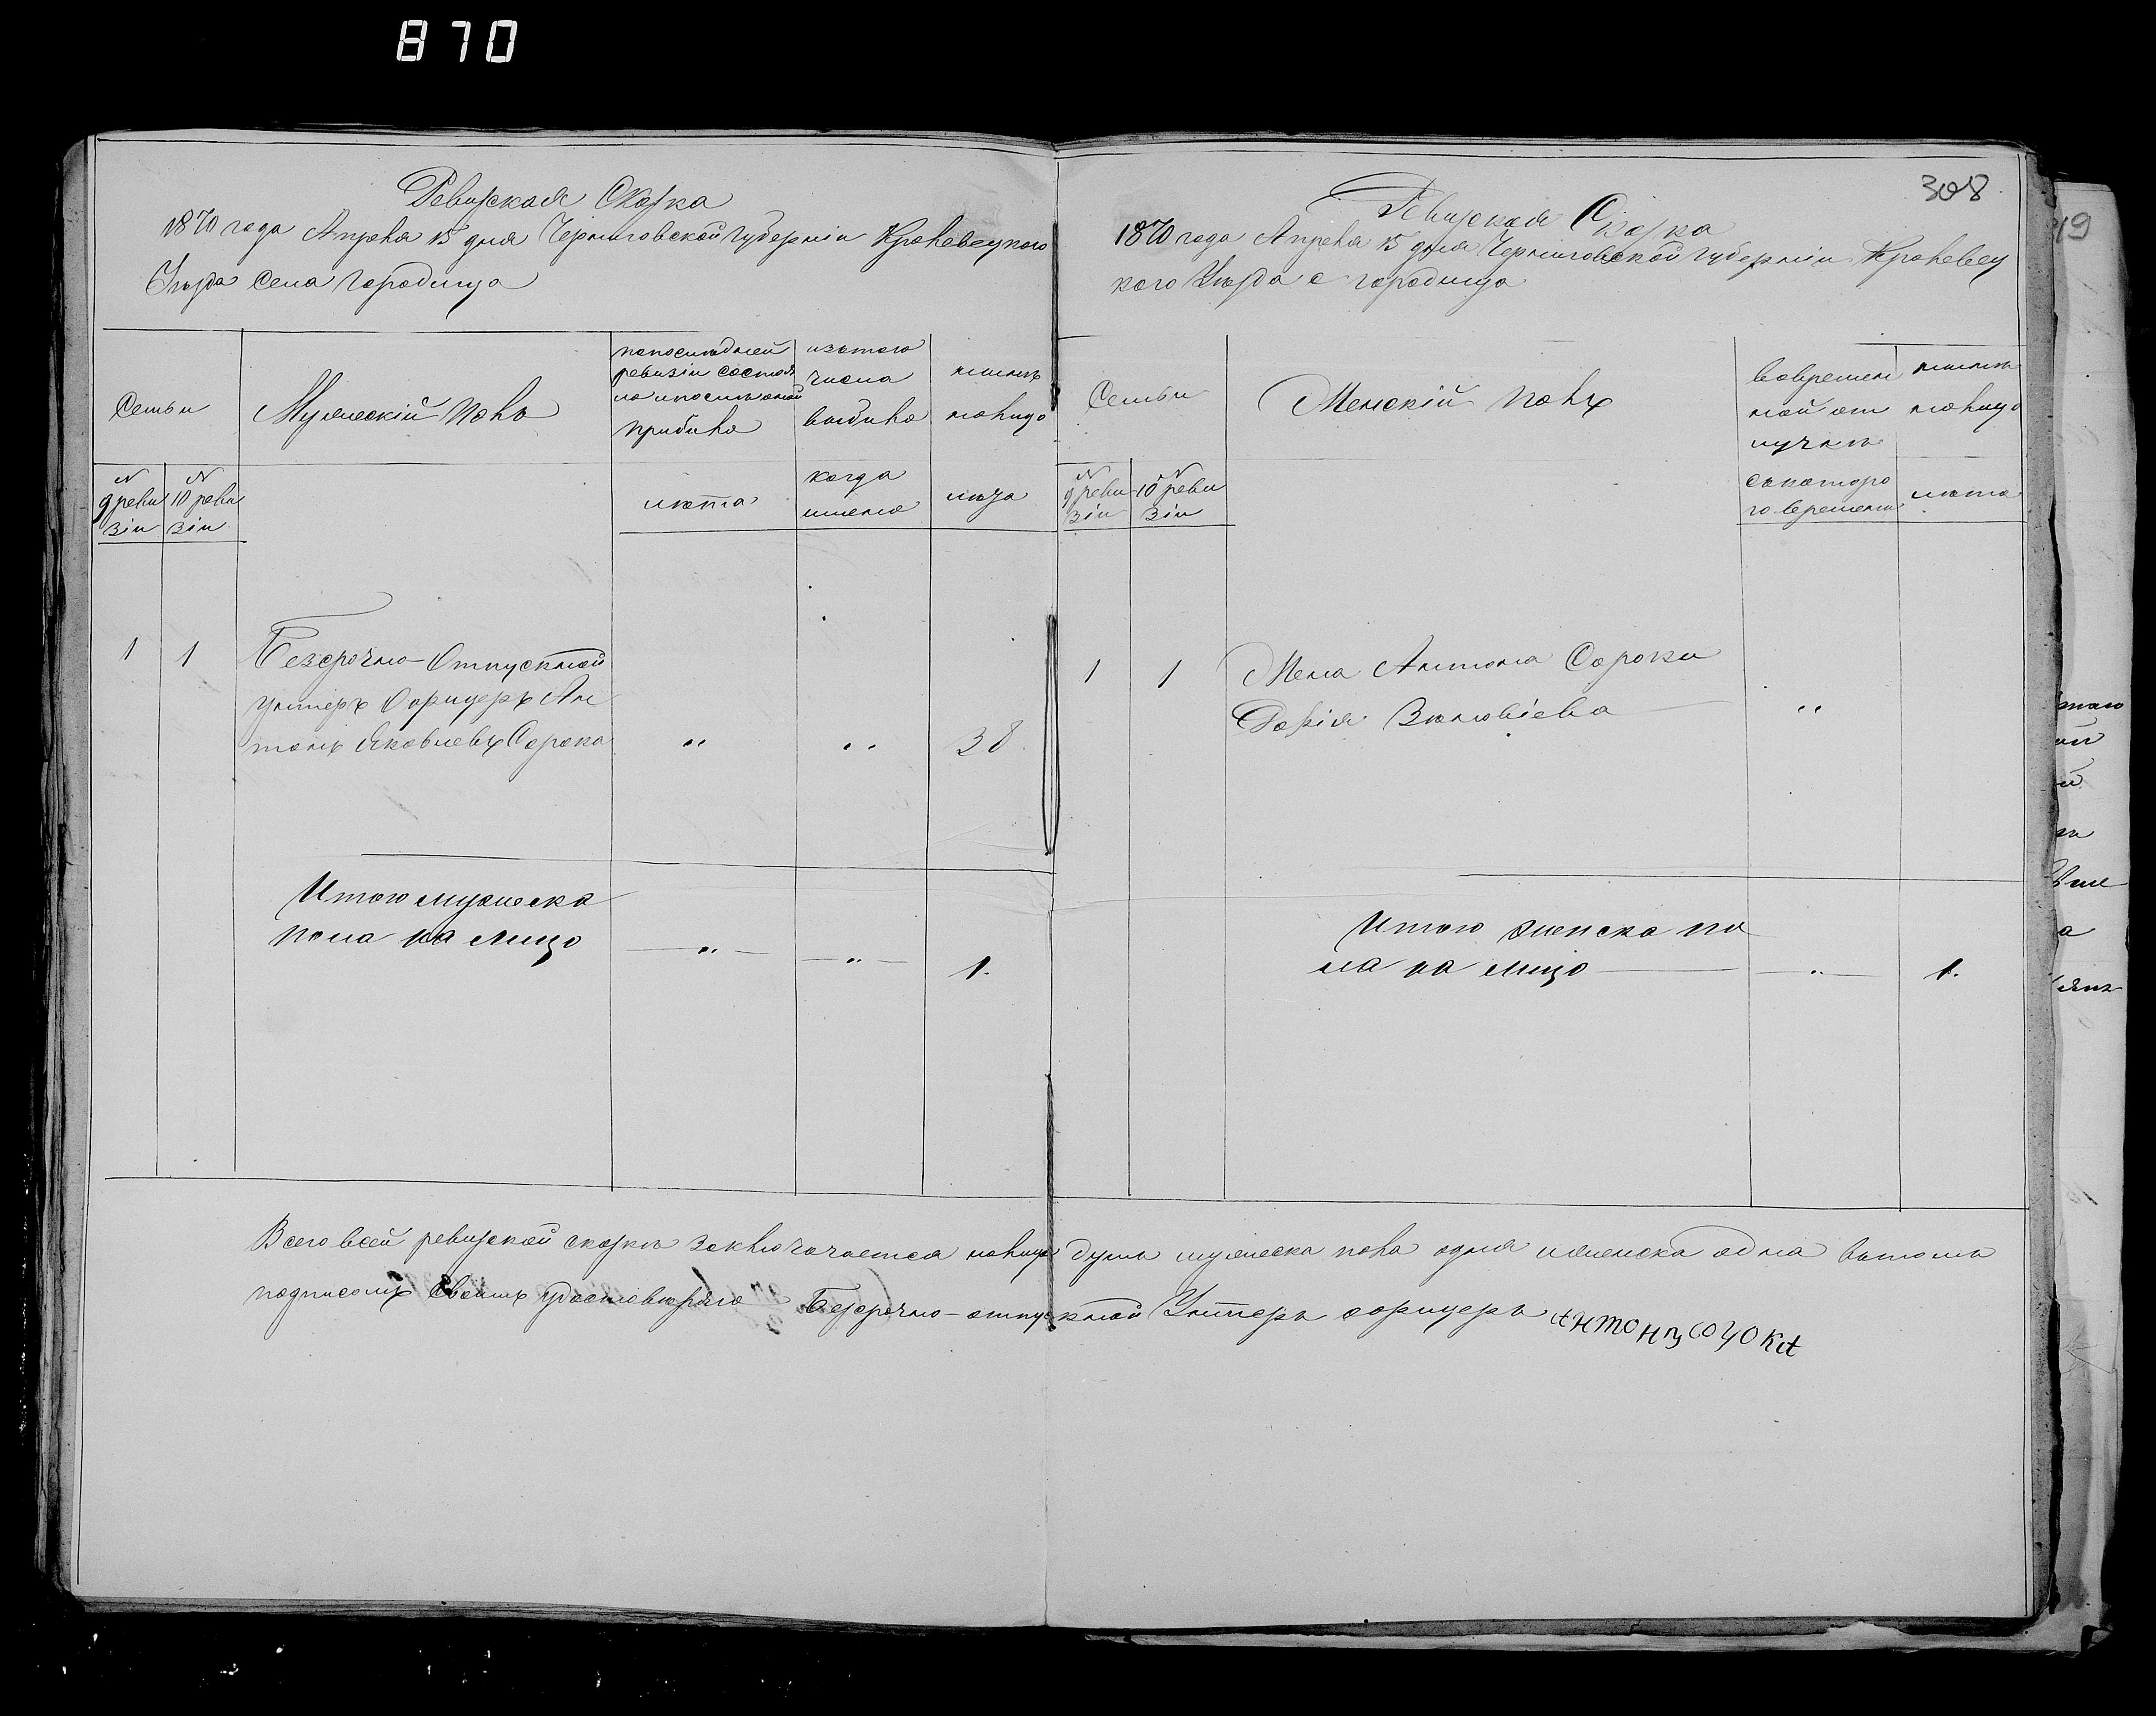 870
Ревизская Сказка
1870 года Апреля 15 дня Черниговской губерніи Кролевецкого
Уѣзда Села Городища
Семьи
Мужескій полъ
попослѣдней
ревизіи состоя
ло ипослѣ оной
прибыло
изътого
числа
выбыло
нынѣ
налицо
N
9 реви
зіи
N
10 реви
зіи
лѣта
когда
имено
лѣта
1
1
Безсрочно-Отпускной
унтеръ Офицеръ Ан
тонъ Яковлевъ Сорока
"
"
38
Итого мужеска
пола на лицо
"
"
1.
308
Ревизская Сказка
1870 года Апреля 15 дня Черниговской губерніи Кролевец
кого Уѣзда с городища
Семьи
Женскій полъ
вовремен
ной от
лучкѣ
нынѣ
налицо
N
9 реви
зіи
N
10 реви
зіи
съкоторо
го времени
лѣта
1
1
Жена Антона Сороки
Зѣновіева
"
Итого женска по
ла на лицо
"
1.
Всего всей ревизской сказкѣ заключается налицо душъ мужеска пола одна иженска одна вътомъ
подписомъ своимъ удостовѣряю Безсрочно-отпускной Унтеръ офицеръ антонъ сорока
19